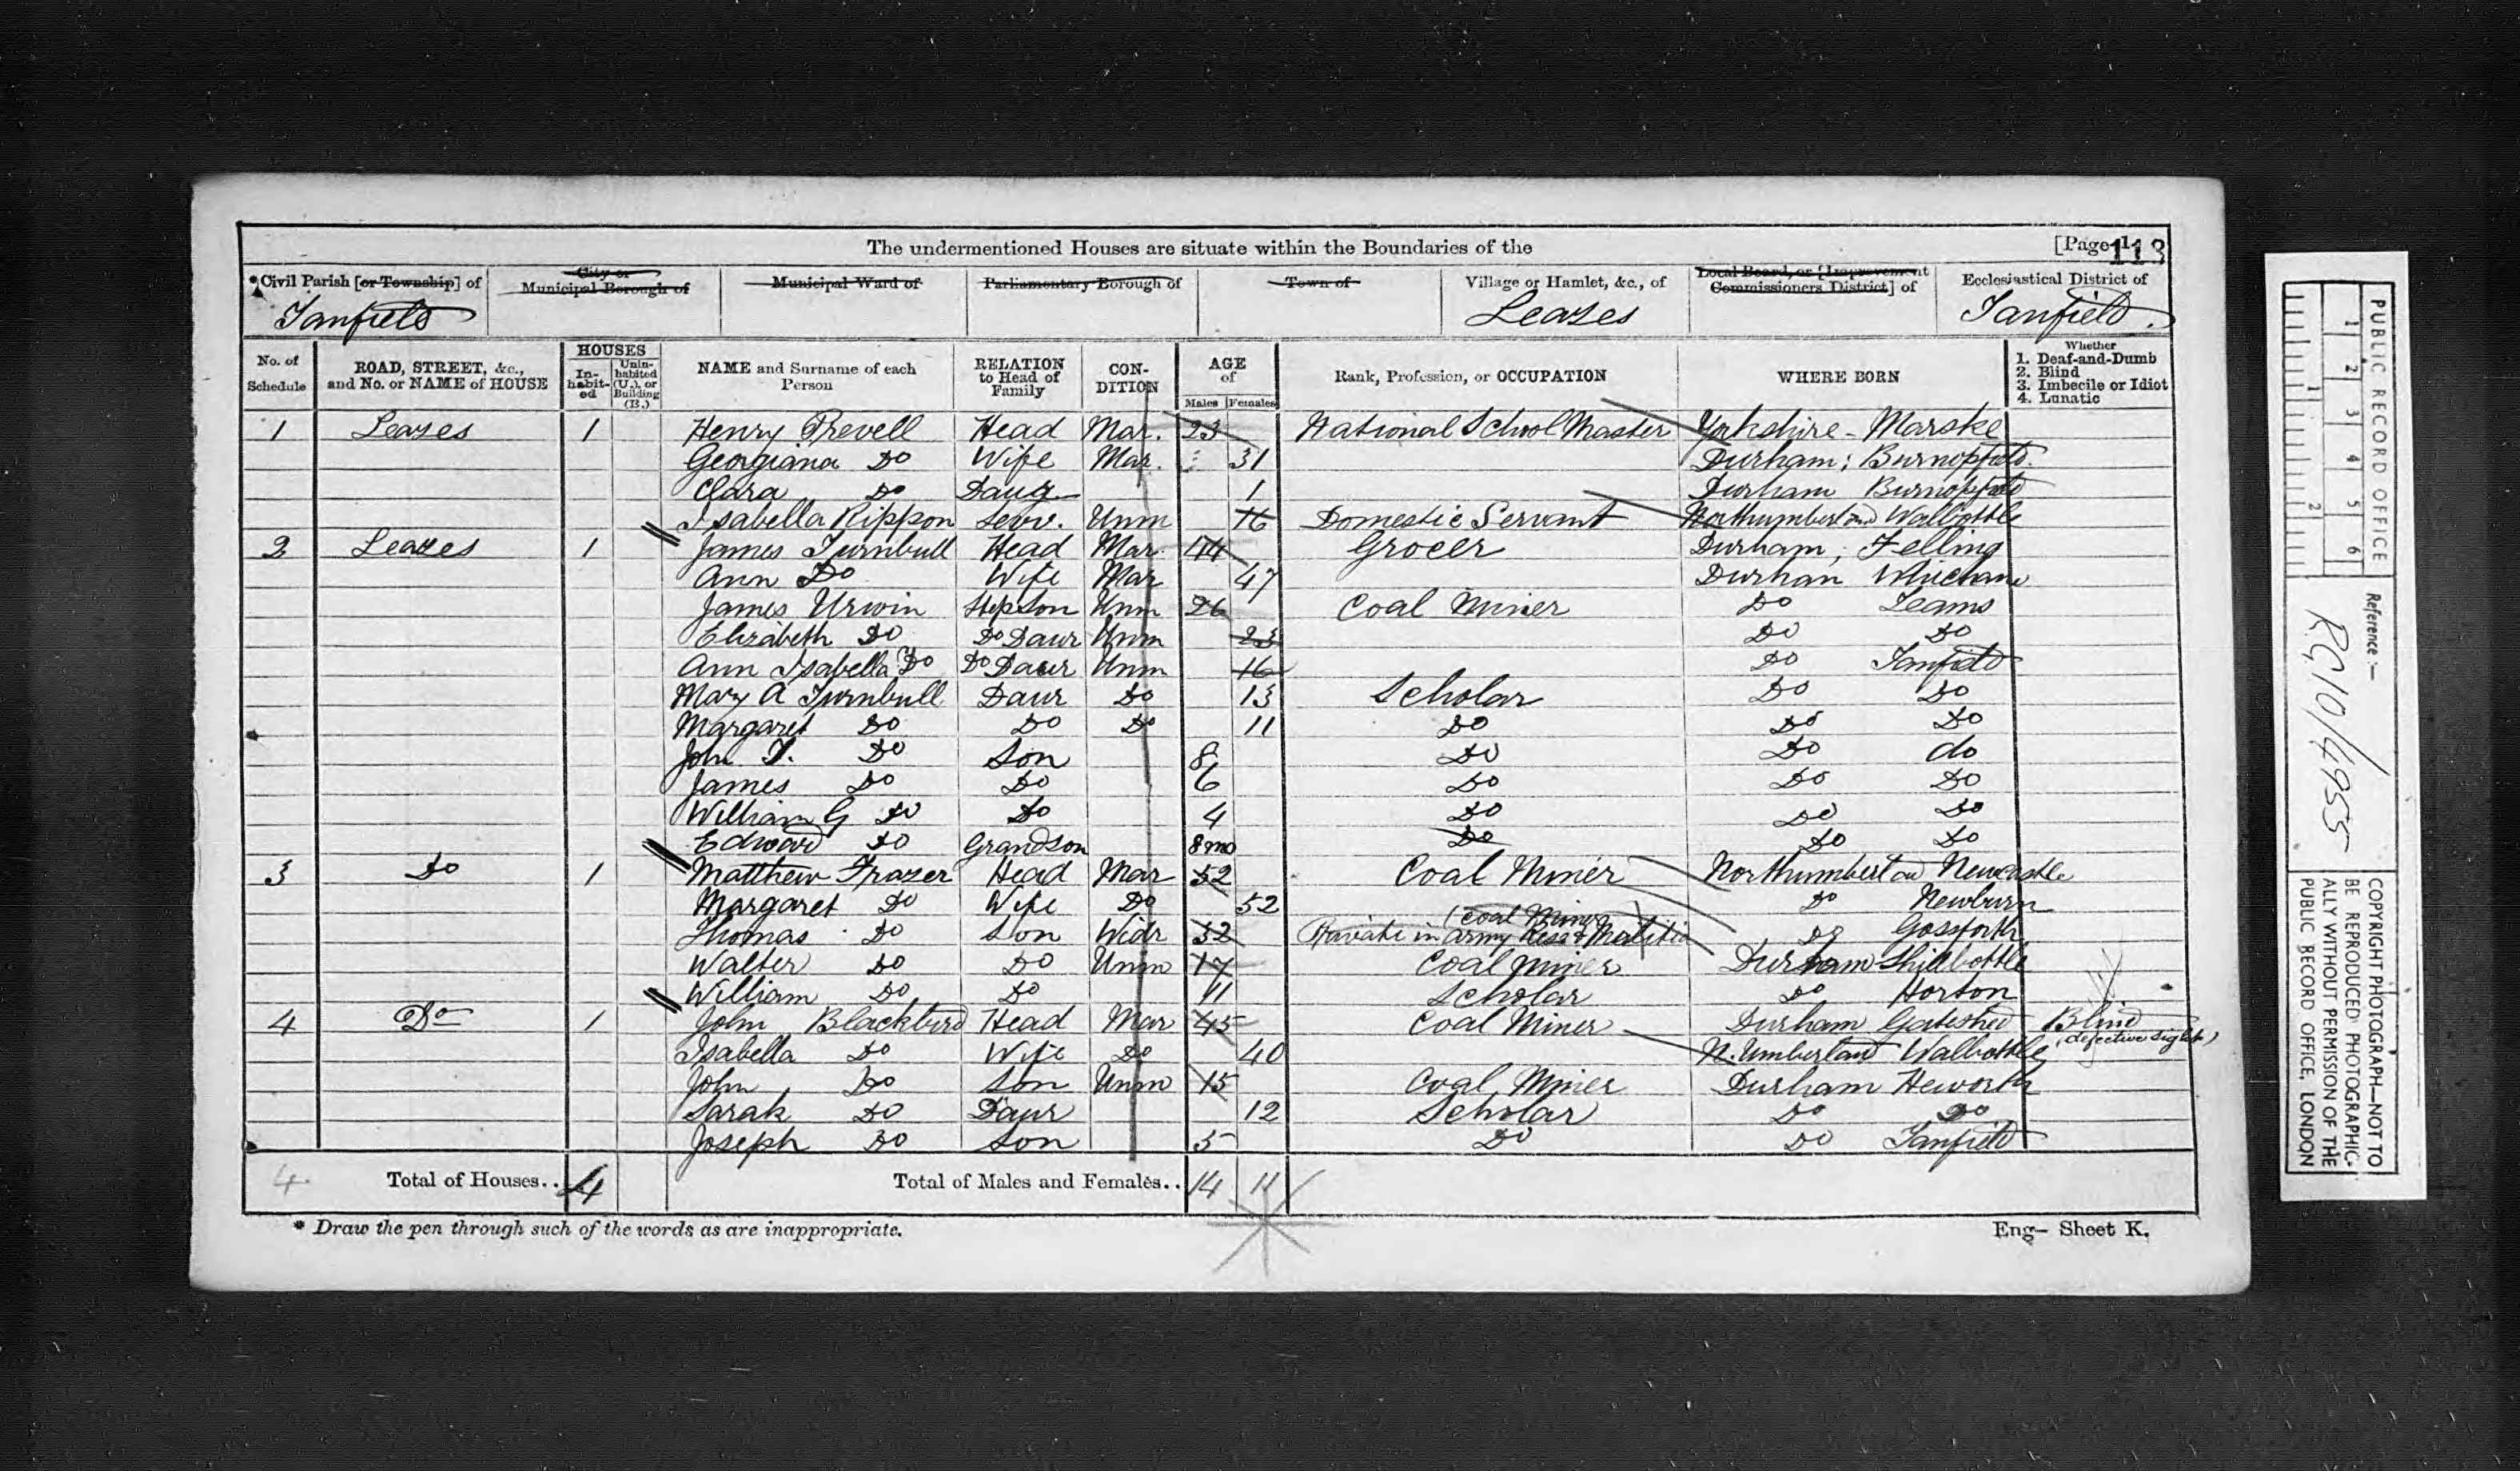 The undermentioned Houses are situate within the Boundaries of the [Page 1 113
*Civil Parish [or Township] of City or Municipal Borough of Municipal Ward of Parliamentary Borough of Town of Village or Hamlet, &c., of Local Board, or [Improvement Commissioners District] of Ecclesiastical District of
Tanfield Leazes Tanfield.
No. of Schedule ROAD, STREET, &c., and No. or NAME of HOUSE HOUSES Inhabited Uninhabited (U.), or Building (B.) NAME and Surname of each Person RELATION to Head of Family CONDITION AGE of Males Females Rank, Profession, or OCCUPATION WHERE BORN Whether 1. Deaf-and-Dumb 2. Blind 3. Imbecile or Idiot 4. Lunatic
1 Leazes 1 Henry Prevell Head Mar. 23 National School Master Yorkshire - Marske
Georgiana Do Wife Mar. 31 Durham; Burnopfield
Clara Do Daug 1 Durham Burnopfield
Isabella Rippon Serv. Unm 16 Domestic Servant Northumberland Walbottle
2 Leazes 1 James Turnbull Head Mar. 44 Grocer Durham, Felling
Ann Do Wife Mar 47 Durham
James Urwin Stepson Unm 26 Coal Miner Do Teams
Elizabeth Do Do Daur Unm 23 Do Do
Ann Isabella Do Do Daur Unm 16 Do Tanfield
Mary A Turnbull Daur Do 13 Scholar Do Do
Margaret Do Do Do 11 Do Do Do
John T. Do Son 8 Do Do do
James Do Do 6 Do Do Do
William G Do Do 4 Do Do Do
Edward Do Grandson 8mo Do Do Do
3 Do 1 Matthew Frazer Head Mar 52 Coal Miner Northumberland Newcastle
Margaret Do Wife Do 52 Do Newburn
Thomas Do Son Widr 32 (Coal Miner Private in Army Resv & Militia Do Gosforth
Walter Do Do Unm 17 Coal Miner Durham Shilbottle
William Do Do 11 Scholar Do Horton
4 Do 1 John Blackbird Head Mar 45 Coal Miner Durham Gateshed Blind
Isabella Do Wife Do 40 N.Umberland Walbottle (defective sight)
John Do Son Unm 15 Coal Miner Durham Heworth
Sarah Do Daur 12 Scholar Do Do
Joseph Do Son 5 Do Do Tanfield
4 Total of Houses.. 4 Total of Males and Females.. 14 11
* Draw the pen through such of the words as are inappropriate. Eng- Sheet K.
PUBLIC RECORD OFFICE
1 2 3 4 5 6
1 2
Reference:-
RG10/4955
COPYRIGHT PHOTOGRAPH-NOT TO
BE REPRODUCED PHOTOGRAPHIC-
ALLY WITHOUT PERMISSION OF THE
PUBLIC RECORD OFFICE, LONDON